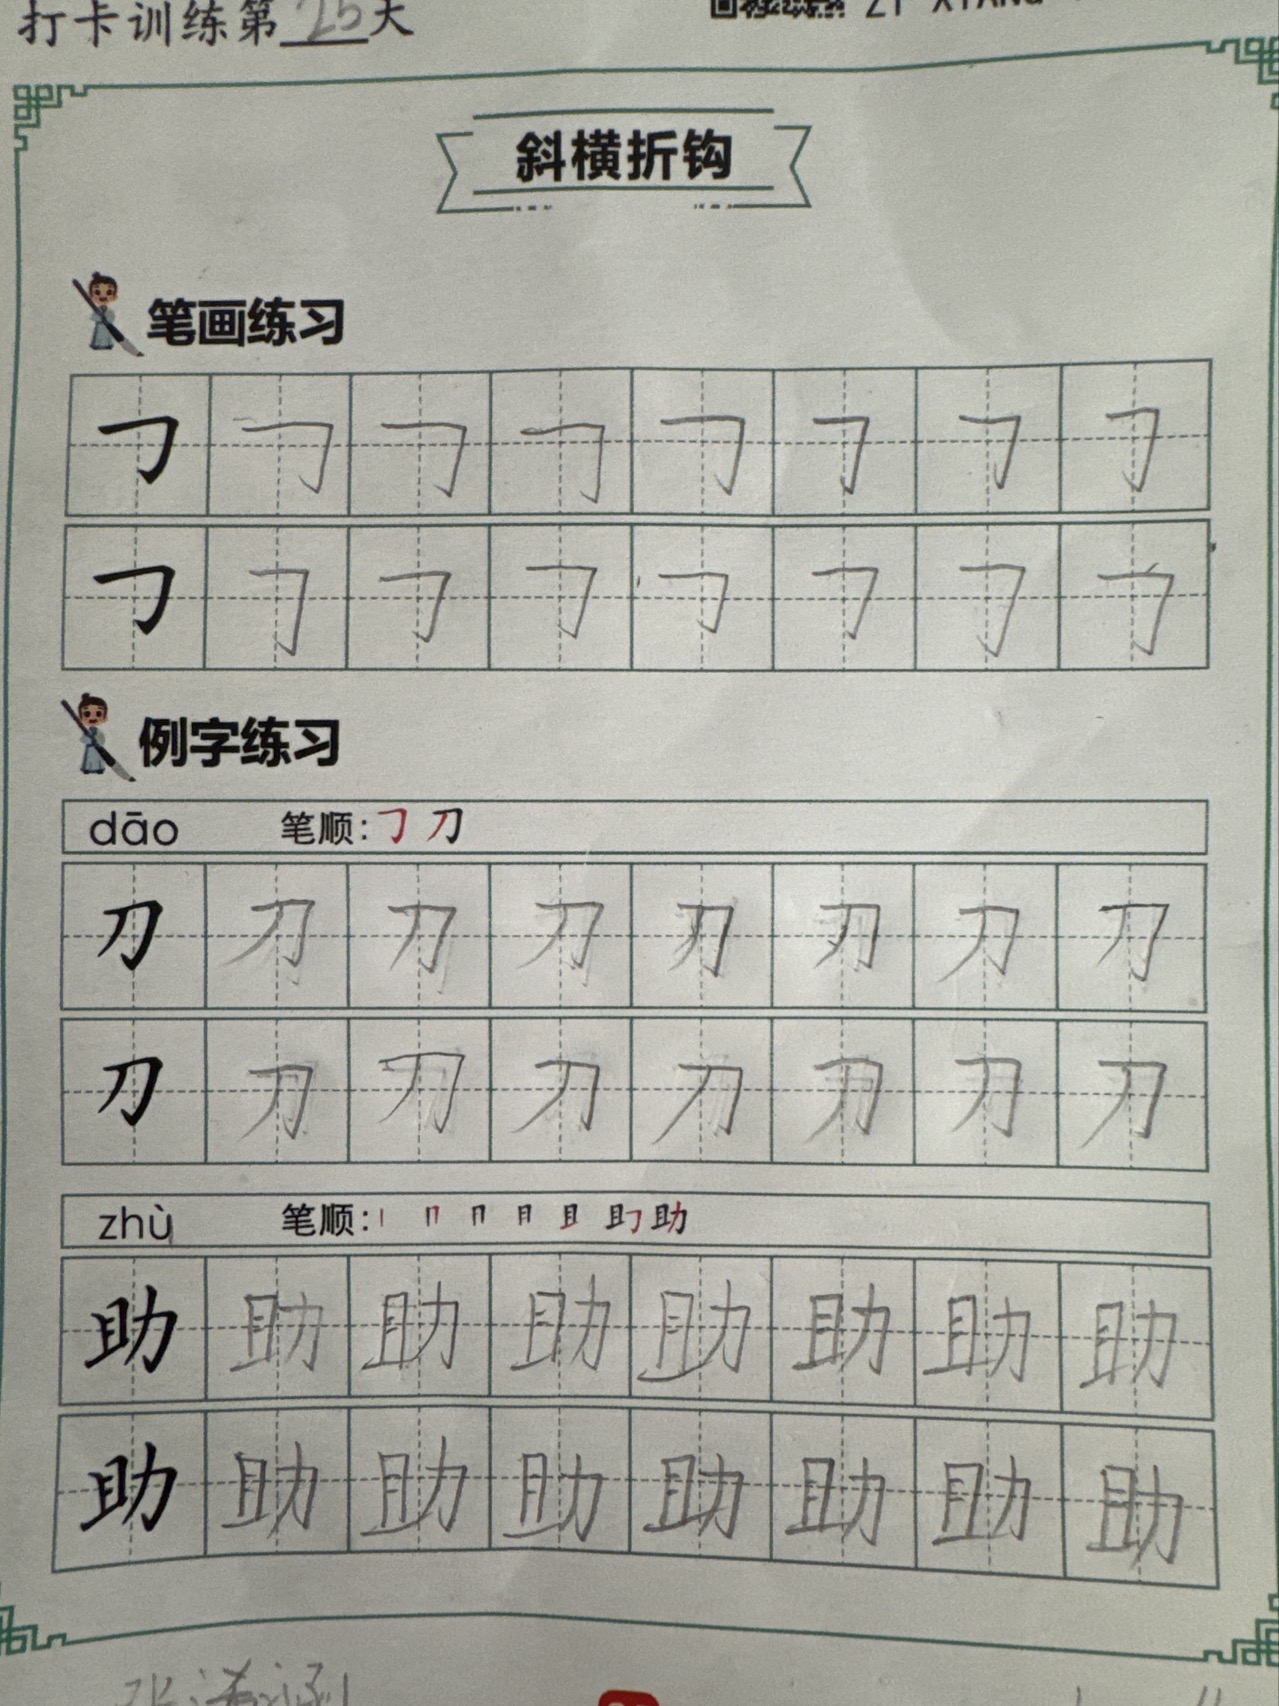 打卡训练第25天
ZI XIANG
斜横折钩
笔画练习
㇆ ㇆ ㇆ ㇆ ㇆ ㇆ ㇆ ㇆
㇆ ㇆ ㇆ ㇆ ㇆ ㇆ ㇆ ㇆
例字练习
dāo 笔顺:㇆ 刀
刀 刀 刀 刀 刀 刀 刀 刀
刀 刀 刀 刀 刀 刀 刀 刀
zhù 笔顺:丨 冂 冂 月 且 助
助 助 助 助 助 助 助 助
助 助 助 助 助 助 助 助